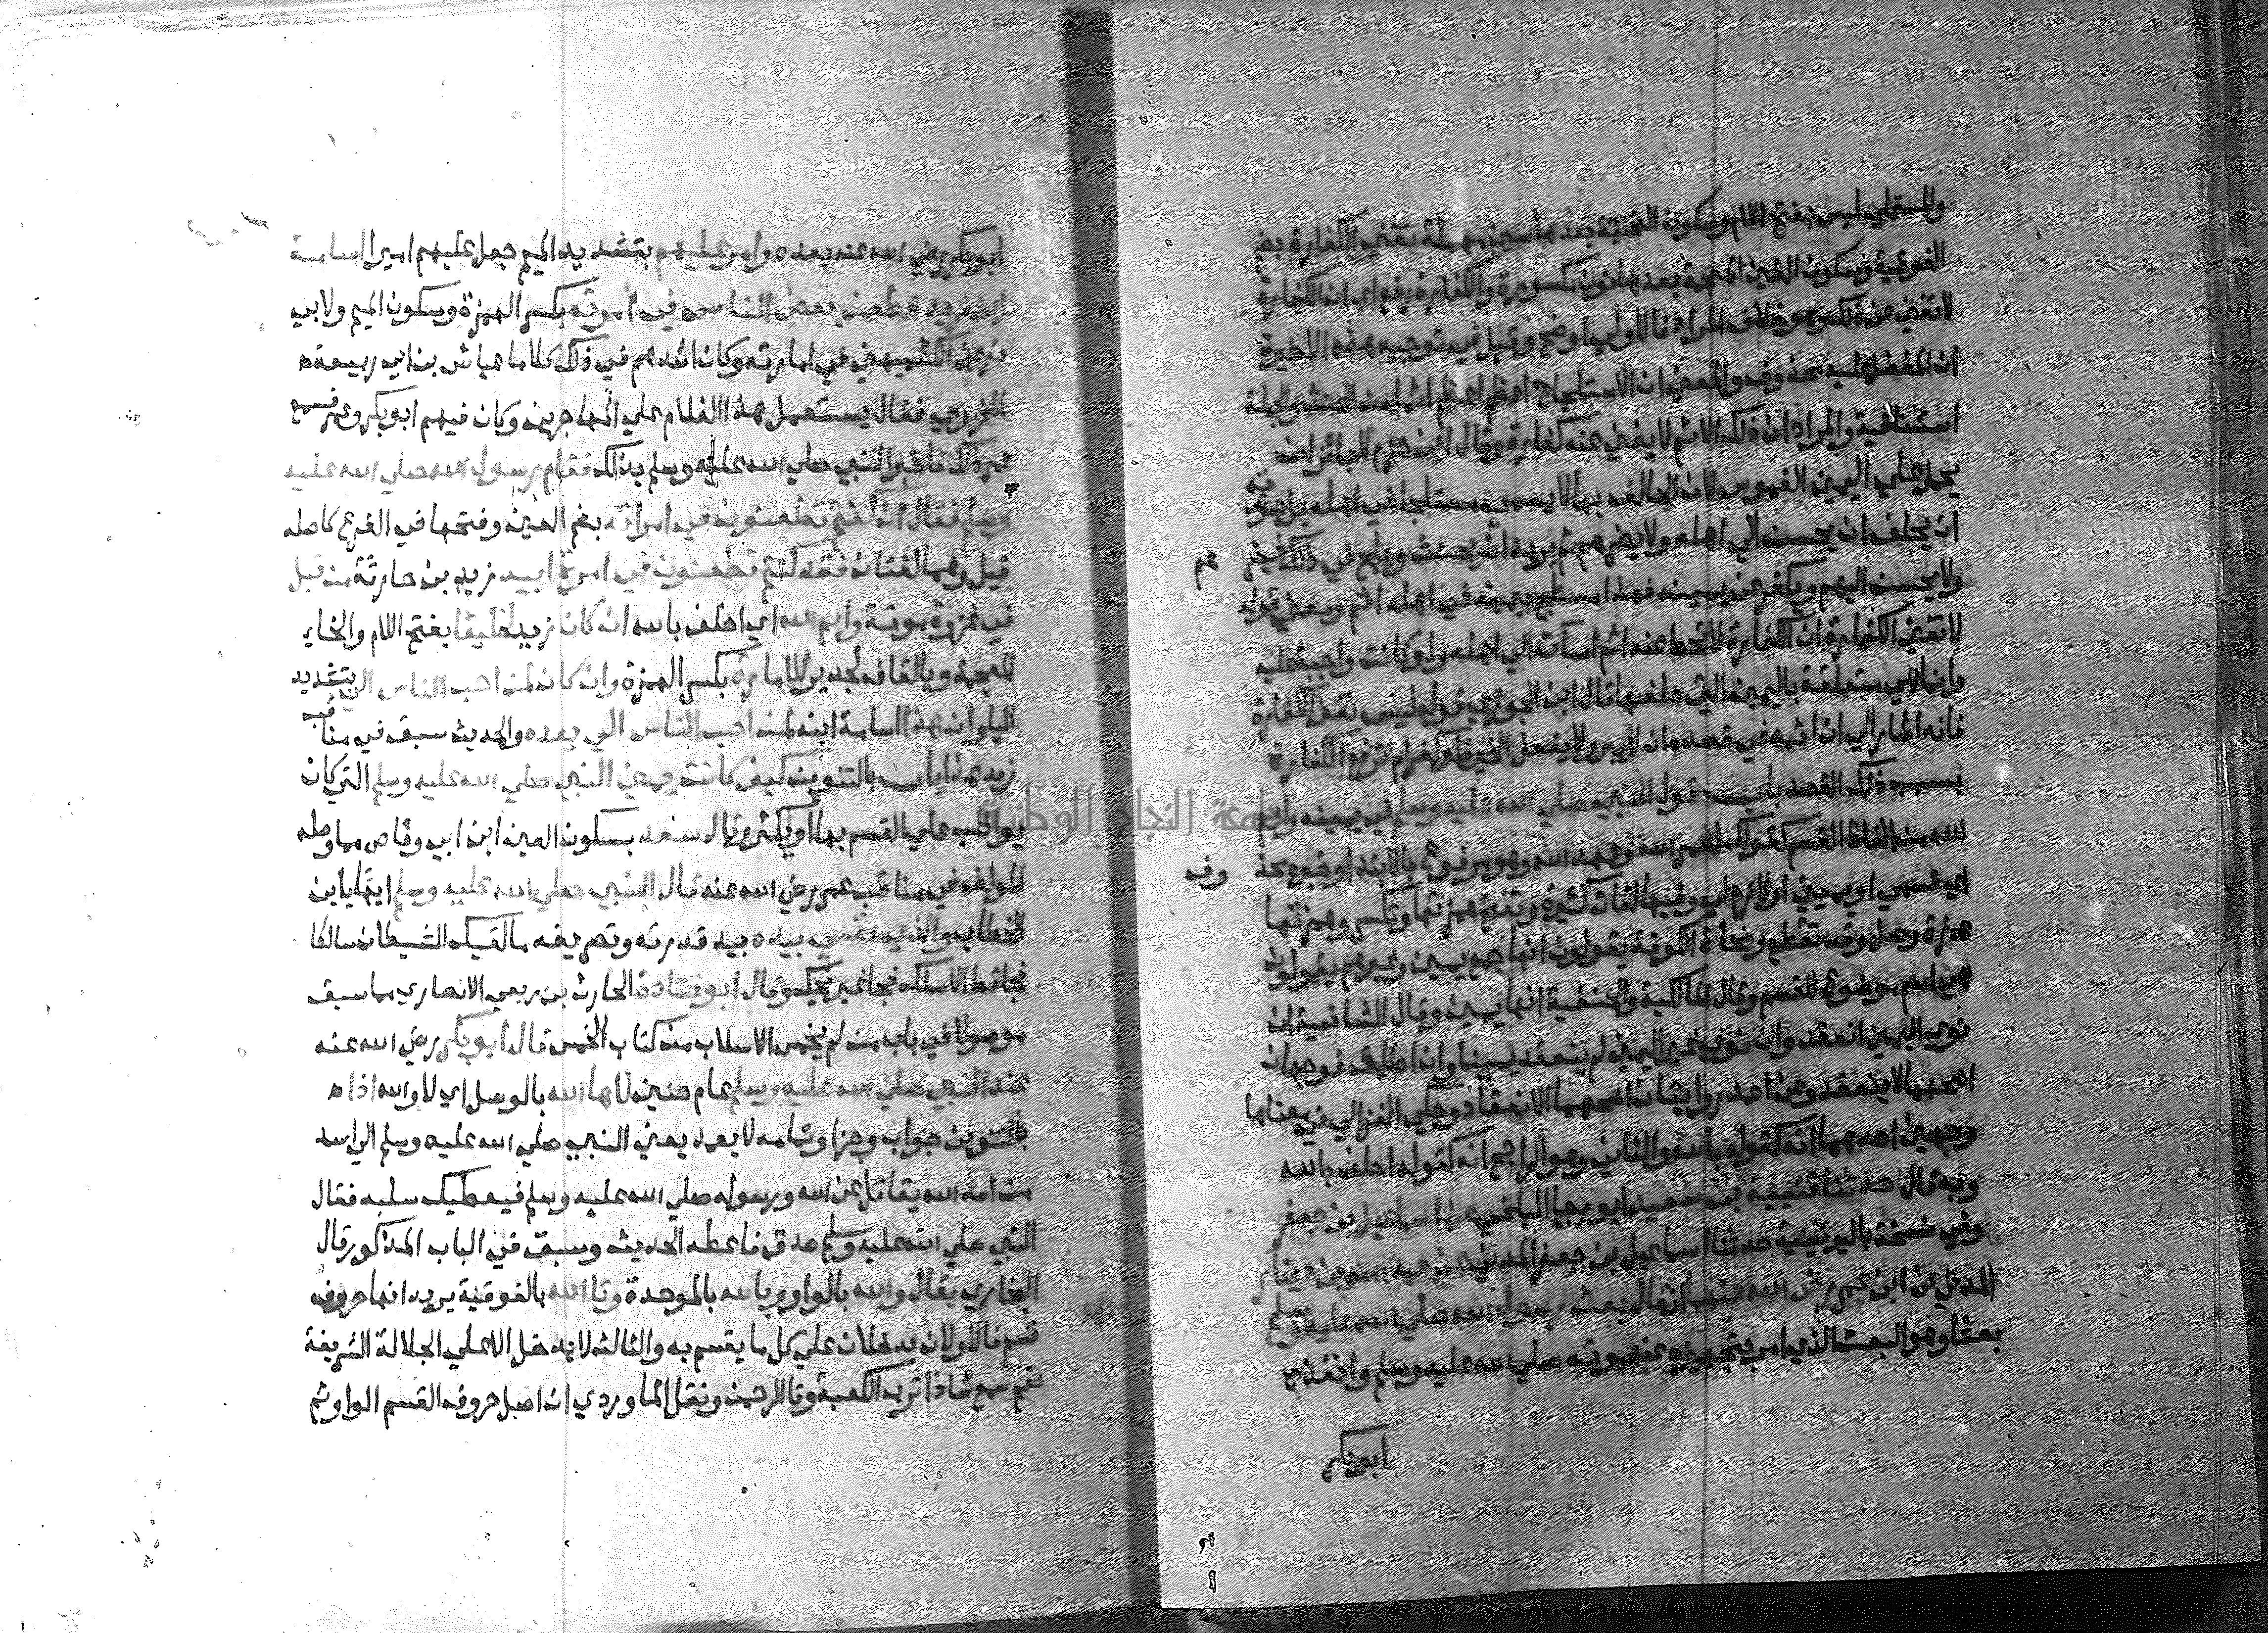 وللمستملي ليس بفتح اللام وسكون التحتية بعدها سين مهملة تغني الكفارة بضم
الفوقية وسكون الغين المعجمة بعدها نون مكسورة والكفارة رفع اي ان الكفارة
لا تغني عن ذلك وهو خلاف المراد فالاولي اوضح وقيل في توجيه هذه الاخيرة
ان المفضل عليه محذوف والمعني ان الاستلجاج اعظم اثما من الحنث والجملة
استئنافية والمراد ان ذلك الاثم لا يغني عنه كفارة وقال ابن حزم لا جائز ان
يحمل علي اليمين الغموس لان الحالف بها لا يسمي مستلجا في اهله بل صورته
ان يحلف ان يحسن الي اهله ولا يضرهم ثم يريد ان يحنث ويلج في ذلك فيضرهم
ولا يحسن اليهم ويكفر عن يمينه فهذا مستلج بيمينه في اهله اثم ومعني قوله
لا تغني الكفارة ان الكفارة لا تحط عنه اثم اساته الي اهله ولو كانت واجبة عليه
وانما هي متعلقة باليمين التي حلفها قال ابن الجوزي قوله ليس تغني الكفارة
فانه اشار الي ان اثمه في قصده ان لا يبر ولا يفعل الخير فلو كفر لم ترفع الكفارة
بسبب ذلك القصد باب قول النبي صلي الله عليه وسلم في يمينه وايم
الله من الفاظ القسم كقولك لعمر الله وعهد الله وهو مرفوع بالابتدا وخبره محذوف
اي قسمي او يميني او لازم لي وفيها لغات كثيرة وتفتح همزتها وتكسر وهمزتها
همزة وصل وقد تقطع ونحاة الكوفة يقولون انها جمع يمين وغيرهم يقولون
هي اسم موضوع للقسم وقال المالكية والحنفية انها يمين وقال الشافعية ان
نوي اليمين انعقد وان نوي غير اليمين لم ينعقد يمينا وان اطلق فوجهان
اصحهما لا ينعقد وعن احمد روايتان اصحهما الانعقاد وحكي الغزالي في معناها
وجهين احدهما انه كقوله بالله والثاني وهو الراجح انه كقوله احلف بالله
وبه قال حدثنا قتيبة بن سعيد ابو رجا البلخي عن اسماعيل بن جعفر
وفي نسخة باليونينية حدثنا اسماعيل بن جعفر المدني عن عبد الله بن دينار
المدني عن ابن عمر رضي الله عنهما انه قال بعث رسول الله صلي الله عليه وسلم
بعثا وهو البعث الذي امر بتجهيزه عند موته صلي الله عليه وسلم وانفذه
ابو بكر
ابو بكر رضي الله عنه بعده وامر عليهم بتشديد الميم جعل عليهم اميرا اسامة
ابن زيد فطعن بعض الناس في امرته بكسر الهمزة وسكون الميم ولابي
ذر عن الكشميهني في امارته وكان اشدهم في ذلك كلاما عياش بن ابي ربيعة
المخزومي فقال يستعمل هذا الغلام علي المهاجرين وكان فيهم ابو بكر وعمر فسمع
عمر ذلك فاخبر النبي صلي الله عليه وسلم بذلك فقام رسول الله صلي الله عليه
وسلم فقال ان كنتم تطعنون في امرته بضم العين وفتحها في الفرع كاصله
قيل وهما لغتان فقد كنتم تطعنون في امرة ابيه زيد بن حارثة من قبل
في غزوة موتة وايم الله اي احلف بالله ان كان زيد لخليقا بفتح اللام والخا
المعجمة وبالقاف لجدير للامارة بكسر الهمزة وان كان لمن احب الناس الي بتشديد
اليا وان هذا اسامة ابنه لمن احب الناس الي بعده والحديث سبق في مناقب
زيد هذا باب بالتنوين كيف كانت يمين النبي صلي الله عليه وسلم التي كان
يواظب علي القسم بها او يكثر وقال سعد بسكون العين ابن ابي وقاص مما وصله
المولف في مناقب عمر رضي الله عنه قال النبي صلي الله عليه وسلم ايها يا ابن
الخطاب والذي نفسي بيده بيد قدرته وتصريفه ما لقيك الشيطان سالكا
فجا قط الا سلك فجا غير فجك وقال ابو قتادة الحارث بن ربعي الانصاري مما سبق
موصولا في باب من لم يخمس الاسلاب من كتاب الخمس قال ابو بكر رضي الله عنه
عند النبي صلي الله عليه وسلم عام حنين لاها الله بالوصل اي لا والله اذا
بالتنوين جواب وجزا وتمامه لا يعمد يعني النبي صلي الله عليه وسلم الي اسد
من اسد الله يقاتل عن الله ورسوله صلي الله عليه وسلم فيعطيك سلبه فقال
النبي صلي الله عليه وسلم صدق فاعطه الحديث وسبق في الباب المذكور قال
البخاري يقال والله بالواو وبالله بالموحدة وتالله بالفوقية يريد انها حروف
قسم فالاولان يدخلان علي كل ما يقسم به والثالث لا يدخل الا علي الجلالة الشريفة
نعم سمع شاذا ترب الكعبة وتالرحمن ونقل الماوردي ان اصل حروف القسم الواو ثم
جامعة النجاح الوطنية